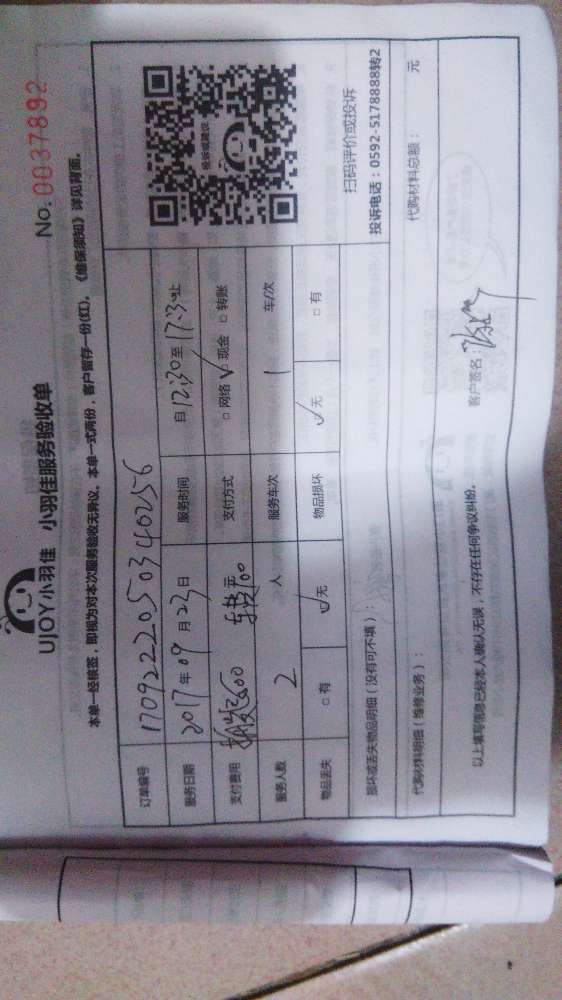 No. 0037892
UJOY小羽佳 小羽佳服务验收单
本单一经核签，即视为对本次服务验收无异议。本单一式两份，客户留存一份(红)。《维保须知》详见背面。
订单编号 170922205034 0256
服务日期 2017年09月23日 服务时间 自12:30至17:30止
支付费用 600 元 支付方式 □网络 ☑现金 □转账
服务人数 2 人 服务车次 1 车/次
物品丢失 □有 ☑无 物品损坏 ☑无 □有
投诉或建议
扫码评价或投诉
投诉电话：0592-5178888转2
损坏或丢失物品明细（没有可不填）：
代购材料明细（维修业务）： 代购材料总额： 元
以上填写信息已经本人确认无误，不存在任何争议纠纷。 客户签名：